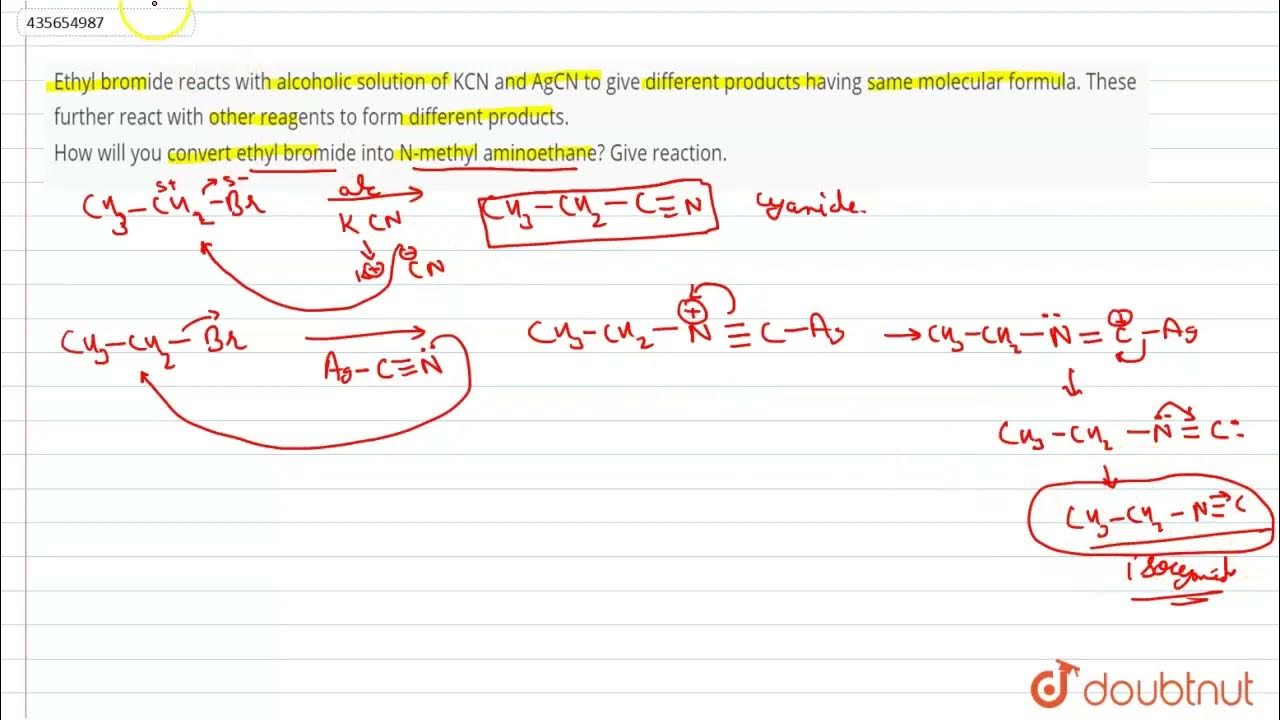 435654987
Ethyl bromide reacts with alcoholic solution of KCN and AgCN to give different products having same molecular formula. These
further react with other reagents to form different products.
How will you convert ethyl bromide into N-methyl aminoethane? Give reaction.
CH3 - CH2 - Br δ+ δ- alc KCN CH3 - CH2 - C ≡ N cyanide.
⊖CN
CH3 - CH2 - Br Ag - C ≡ N̈ CH3 - CH2 - N⊕ ≡ C - Ag → CH3 - CH2 - N̈ = C⊕ - Ag
CH3 - CH2 - N̈ = C:
CH3 - CH2 - N ≡ C
isocyanide
doubtnut